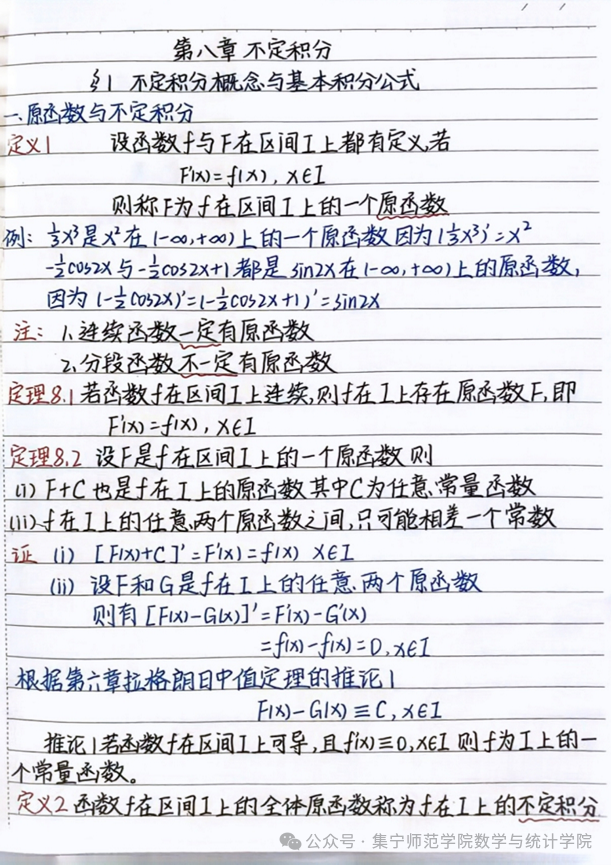 第八章 不定积分
§1 不定积分概念与基本积分公式
一、原函数与不定积分
定义1 设函数f与F在区间I上都有定义,若
F'(x)=f(x), x∈I
则称F为f在区间I上的一个原函数
例: ⅓x³是x²在(-∞,+∞)上的一个原函数 因为(⅓x³)'=x²
-½cos2x与-½cos2x+1都是sin2x在(-∞,+∞)上的原函数,
因为(-½cos2x)'=(-½cos2x+1)'=sin2x
注: 1、连续函数一定有原函数
2、分段函数不一定有原函数
定理8.1 若函数f在区间I上连续,则f在I上存在原函数F,即
F'(x)=f(x), x∈I
定理8.2 设F是f在区间I上的一个原函数 则
(i) F+C也是f在I上的原函数 其中C为任意常量函数
(ii) f在I上的任意两个原函数之间,只可能相差一个常数
证 (i) [F(x)+C]'=F'(x)=f(x) x∈I
(ii) 设F和G是f在I上的任意两个原函数
则有[F(x)-G(x)]'=F'(x)-G'(x)
=f(x)-f(x)=0,x∈I
根据第六章拉格朗日中值定理的推论1
F(x)-G(x)≡C,x∈I
推论1 若函数f在区间I上可导,且f'(x)≡0,x∈I 则f为I上的一
个常量函数。
定义2 函数f在区间I上的全体原函数称为f在I上的不定积分
公众号 · 集宁师范学院数学与统计学院